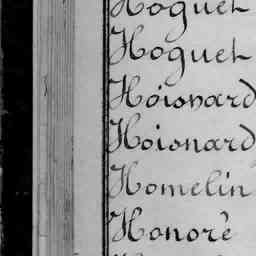 Hoguet
Hoguet
Hoisnard
Hoisnard
Homelin
Honorè